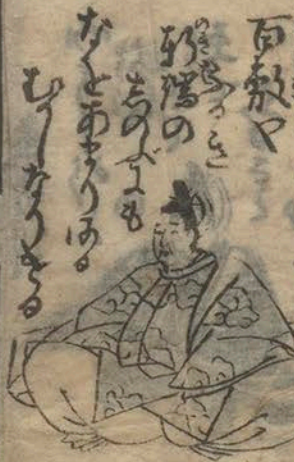 百敷や
ふるき
軒端の
しのぶにも
なをあまりある
むかしなりける